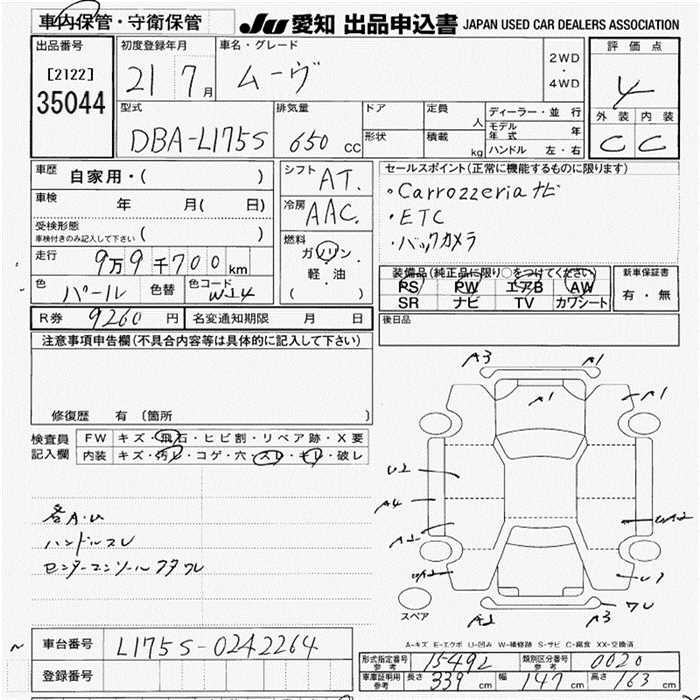 車内保管・守衛保管
JU 愛知 出品申込書 JAPAN USED CAR DEALERS ASSOCIATION
出品番号
[2122]
35044
初度登録年月
21 7月
車名・グレード
ムーヴ
2WD
・
4WD
評価点
4
外装 内装
C C
型式
DBA-L175S
排気量
650 cc
ドア
形状
定員 人
積載 kg
ディーラー・並行
モデル年式 年
ハンドル 左・右
車歴
自家用・( )
車検 年 月( 日)
受検形態
車検付きのみ記入して下さい ( )
走行
9万9千700km
色
パール
色替
色コード
W24
シフト
AT.
冷房
AAC.
燃料
ガソリン
軽・油
( )
セールスポイント(正常に機能するものに限ります)
・Carrozzeriaナビ
・ETC
・バックカメラ
装備品(純正品に限り○をつけてください)
PS PW エアB AW
SR ナビ TV カワシート
新車保証書
有・無
R券 9260円
名変通知期限 月 日
後日品
注意事項申告欄(不具合内容等は具体的に記入して下さい)
修復歴 有 〔箇所 〕
検査員記入欄
FW キズ・飛石・ヒビ割・リペア跡・X要
内装 キズ・汚レ・コゲ・穴・スレ・キレ・破レ
各A.U
ハンドルスレ
センターコンソールフタワレ
A3 A1
A1 A1
U2
A4
A2
U2
A2 A3 ワレ
スペア
A-キズ E-エクボ U-凹み W-補修跡 S-サビ C-腐食 XX-交換済
車台番号 L175S-0242264
登録番号
形式指定番号 参考 15492
類別区分番号 参考 0020
車庫証明用 参考 長さ 339cm 幅 147cm 高さ 163cm